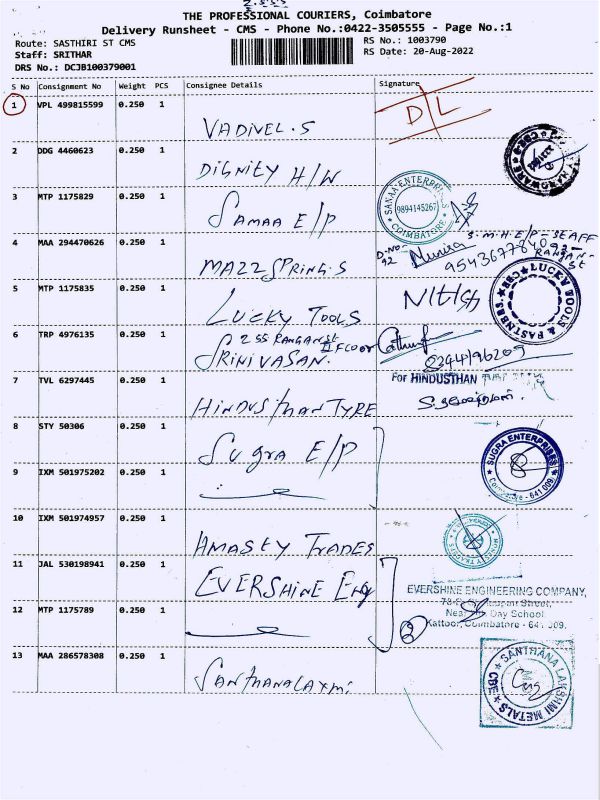 THE PROFESSIONAL COURIERS, Coimbatore
Delivery Runsheet - CMS - Phone No.:0422-3505555 - Page No.:1
Route: SASTHIRI ST CMS
RS No.: 1003790
Staff: SRITHAR
RS Date: 20-Aug-2022
DRS No.: DCJB100379001
S No Consignment No Weight PCS Consignee Details Signature
1 VPL 499815599 0.250 1 VADIVEL.S DL
2 DDG 4460623 0.250 1 DIGNITY H/W
3 MTP 1175829 0.250 1 SAMAA E/P
SANAA ENTERPRISES 9894145267 COIMBATORE
4 MAA 294470626 0.250 1 MAZZ SPRING.S
D.NO- 92
S.M.H.E/P-SEAFF
RANGAN- ST
5 MTP 1175835 0.250 1 LUCKY TOOLS Nitish
LUCKY TOOLS & FASTNERS. CBE
255 RANGAN ST II FLOOR
6 TRP 4976135 0.250 1 SRINIVASAN.
7 TVL 6297445 0.250 1 HINDUSTHAN TYRE
For HINDUSTHAN
8 STY 50306 0.250 1 Sugra E/P
SUGRA ENTERPRISES Coimbatore - 641 009.
9 IXM 501975202 0.250 1
10 IXM 501974957 0.250 1 AMASTY TRADES
11 JAL 530198941 0.250 1 EVERSHINE Eng
EVERSHINE ENGINEERING COMPANY,
Street,
12 MTP 1175789 0.250 1
Day School
2 Kattoor, Coimbatore - 641 009.
13 MAA 286578308 0.250 1 SANTHANALAXMI
SANTHANA LAKSHMI METALS CBE